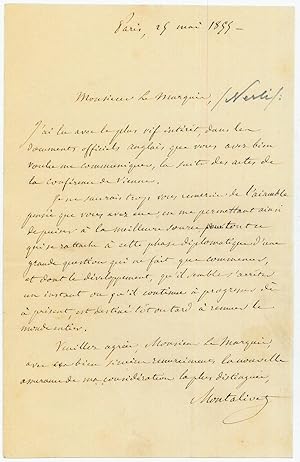 Paris, 25 mai 1855 –
Monsieur Le Marquis, (Nerli).
J'ai lu avec le plus vif intérêt, dans les
documents officiels anglais que vous avez bien
voulu me communiquer, la suite des actes de
la conférence de Vienne.
Je ne saurais trop vous remercier de l'aimable
pensée que vous avez eue, en me permettant ainsi
de puiser à la meilleure source pour tout ce
qui se rattache à cette phase diplomatique d'une
grande question qui ne fait que commencer,
et dont le développement, qu'il semble s'arrêter
un instant ou qu'il continue à progresser dès
à présent, est destiné tôt ou tard à remuer le
monde entier.
Veuillez agréer, Monsieur le Marquis,
avec bien sincères remerciements, la nouvelle
assurance de ma considération la plus distinguée,
Montalivet